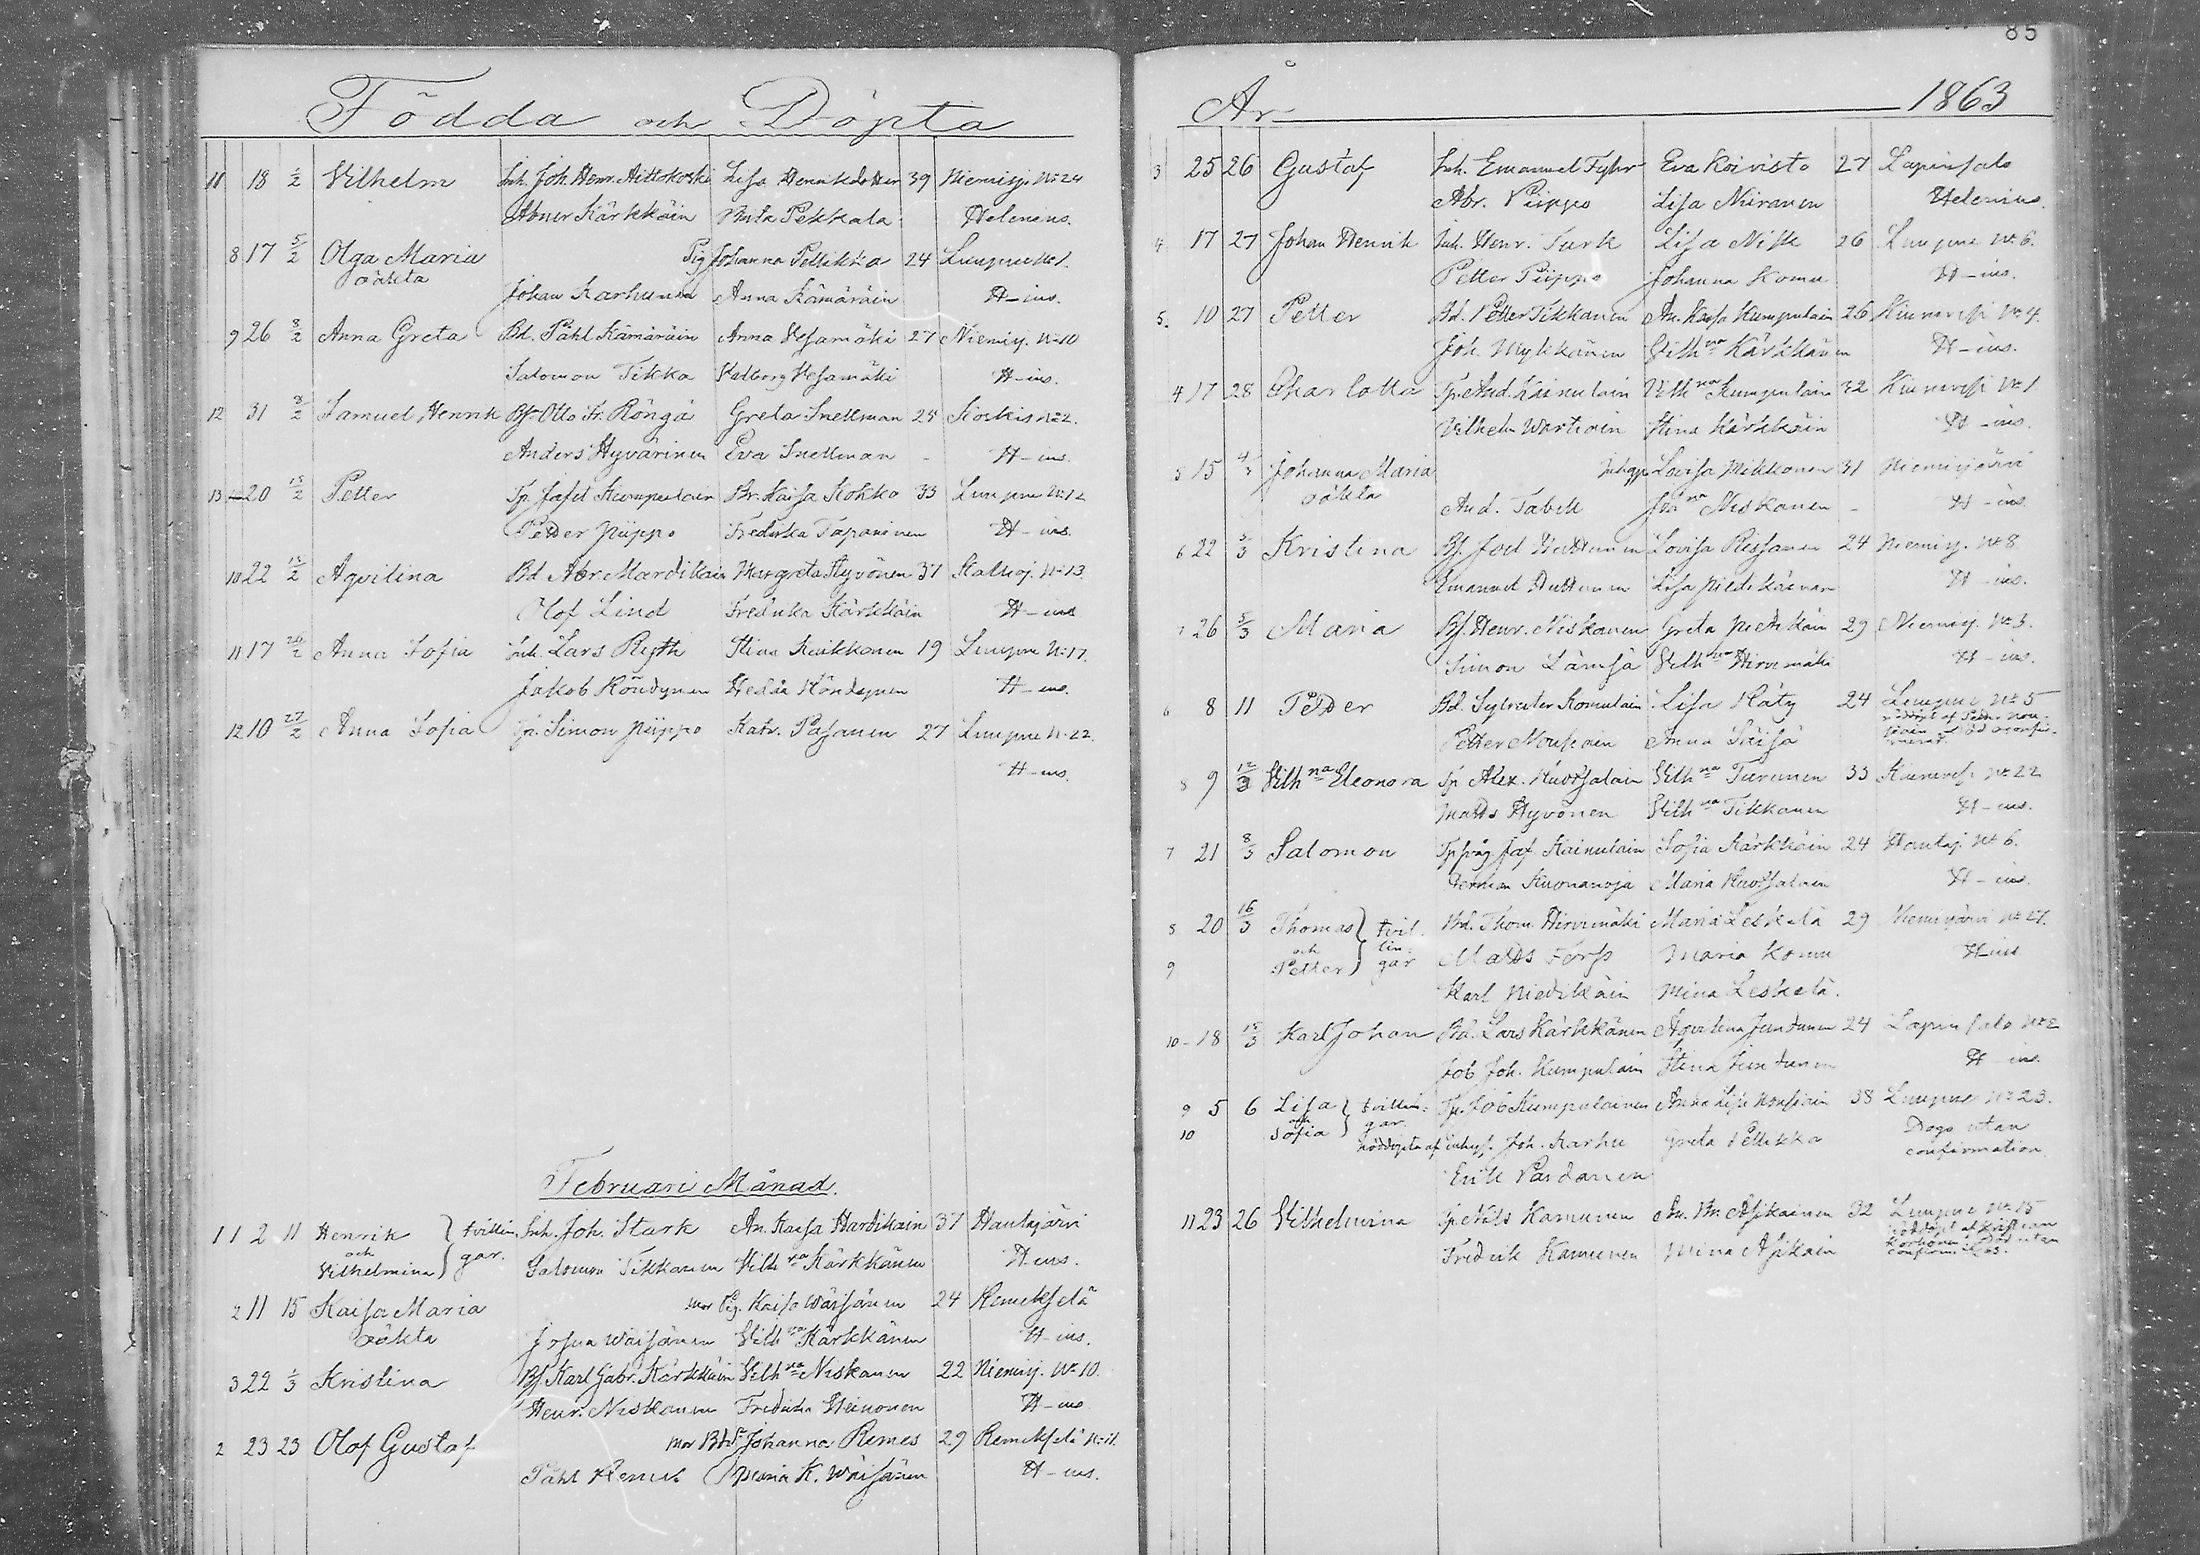 Födda och Döpta
10 18 2/2 Vilhelm Inh. Joh. Henr. Aittokoski Lisa Henriksdotter 39 Niemisj. No 24
Abner Kärkkäin Brita Pekkala Helenius.
8 17 5/2 Olga Maria Pig Johanna Pellikka 24 Luupuve No 1.
oäkta
Johan Karhunen Anna Kämäräin H-ius.
9 26 8/2 Anna Greta Bd. Påhl Kämäräin Anna Vesamäki 27 Niemisj. No 10
Salomon Tikka Valborg Vesamäki H-ius.
12 31 8/2 Samuel Henrik Bf. Otto Fr. Röngä Greta Snellman 25 No 2.
Anders Hyvärinen Eva Snellman - H-ius.
13 20 15/2 Petter Tp. Jafet Kumpulain Br. Kaisa Kokko 33 Luupuve No 12
Petter Piippo Fredrika Tapaninen H-ius.
10 22 15/2 Aqvilina Bd. Abr. Mardikain Margreta Hyvönen 37 Kallioj. No 13.
Olof Lind Fredrika Kärkkäin H-ius
11 17 20/2 Anna Sofia Inh. Lars Ryth Stina Keikkonen 19 Luupuve No 17.
Jakob Röndynen Hedda Röndynen H-ius.
12 10 27/2 Anna Sofia Tp. Simon Piippo Katr. Pasanen 27 Luupuve N. 22.
H-ius.
Februari Månad.
1 1 2 11 Henrik tvillin Inh. Joh. Stark An. Kaisa Hardikain 37 Hautajärvi
och gar.
Vilhelmina Salomon Tikkanen Vilhna Kärkkänen H-ius.
2 11 15 Kaisa Maria mor Pig. Kaisa Wäisänen 24 Remekselä
oäkta Josua Wäisänen Vilhna Kärkkänen H-ius.
3 22 1/3 Kristina Bf. Karl Gabr. Kärkkäin Vilhna Niskanen 22 Niemisj. No 10.
Henr. Niskanen Fredrika Heinonen H-ius
2 23 23 Olof Gustaf mor Johanna Remes 29 Remekselä
Påhl Remes Maria K. Wäisänen H-ius.
85
År 1863
3 25 26 Gustaf Inh. Emanuel Fyhr Eva Koivisto 27 Lapinsalo
Abr. Piippo Lisa Niiranen Helenius.
4 17 27 Johan Henrik Inh. Henr. Turk Lisa Nisk 26 Luupuve No 6.
Petter Piippo Johanna Komu H-ius.
5. 10 27 Petter Bd. Petter Tikkanen An. Kaisa Kumpulain 26 Kiuruvesi No 4.
Joh. Mykkänen Vilhna Kärkkänen H-ius.
4 17 28 Charlotta Tp. And. Kainulain Vilhna Kumpulain 32 Kiuruvesi No 1
Vilhelm Wartiain Stina Kärkkäin H-ius.
5 15 4/3 Johanna Maria Lovisa Mikkonen 31 Niemisjärvi
oäkta And. Tabell Johna Niskanen - H-ius.
6 22 5/3 Kristina Bf. Joel Huttunen Lovisa Rissanen 24 Niemisj. No 8
Emanuel Huttunen Lisa H-ius.
7 26 5/3 Maria Bf. Henr. Niskanen Greta 29 Niemisj. No 3.
Simon Lämsä Vilhna Hirvimäki H-ius.
6 8 11 Petter Bd. Sylvester Komulain Lisa Räty 24 Luupuve No 5
Petter Nousiain Anna Säisä nöddöpt af Petter Nousiain
8 9 12/3 Vilhna Eleonora Tp Alex. Huotsalain Vilhna Turunen 33 Kiuruvesi No 22
Matts Hyvönen Vilhna Tikkanen H-ius.
7 21 8/3 Salomon Jaf. Kainulain Sofia Kärkkäin 24 Hautaj. No 6.
Herman Kuonanoja Maria Huotsalain H-ius.
8 20 16/3 Thomas tvil- Bd. Thom. Hirvimäki Maria Leskelä 29 Niemisjärvi No 27.
och lin-
9 Petter gar Matts Forss Maria Komu H-ius
Karl Mina Leskelä.
10 18 15/3 Karl Johan Bd. Lars Kärkkänen Aqvilina Juntunen 24 Lapinsalo No 2
Job Joh. Kumpulain Stina Juntunen H-ius.
9 5 6 Lisa tvillin- Tp. Job Kumpulainen Anna Lisa Nousiain 38 Luupuve No 23.
och gar.
10 Sofia nöddöpta af inhys. Joh. Karhu Greta Pellikka Dogo utan confirmation.
Erik Pardanen
11 23 26 Vilhelmina Tp. Nils Kamunen An. Mr. Asikainen 32 Luupuve No 15
Fredrik Kamunen Mina Asikain nöddöpt af Kristian Korhonen Död utan